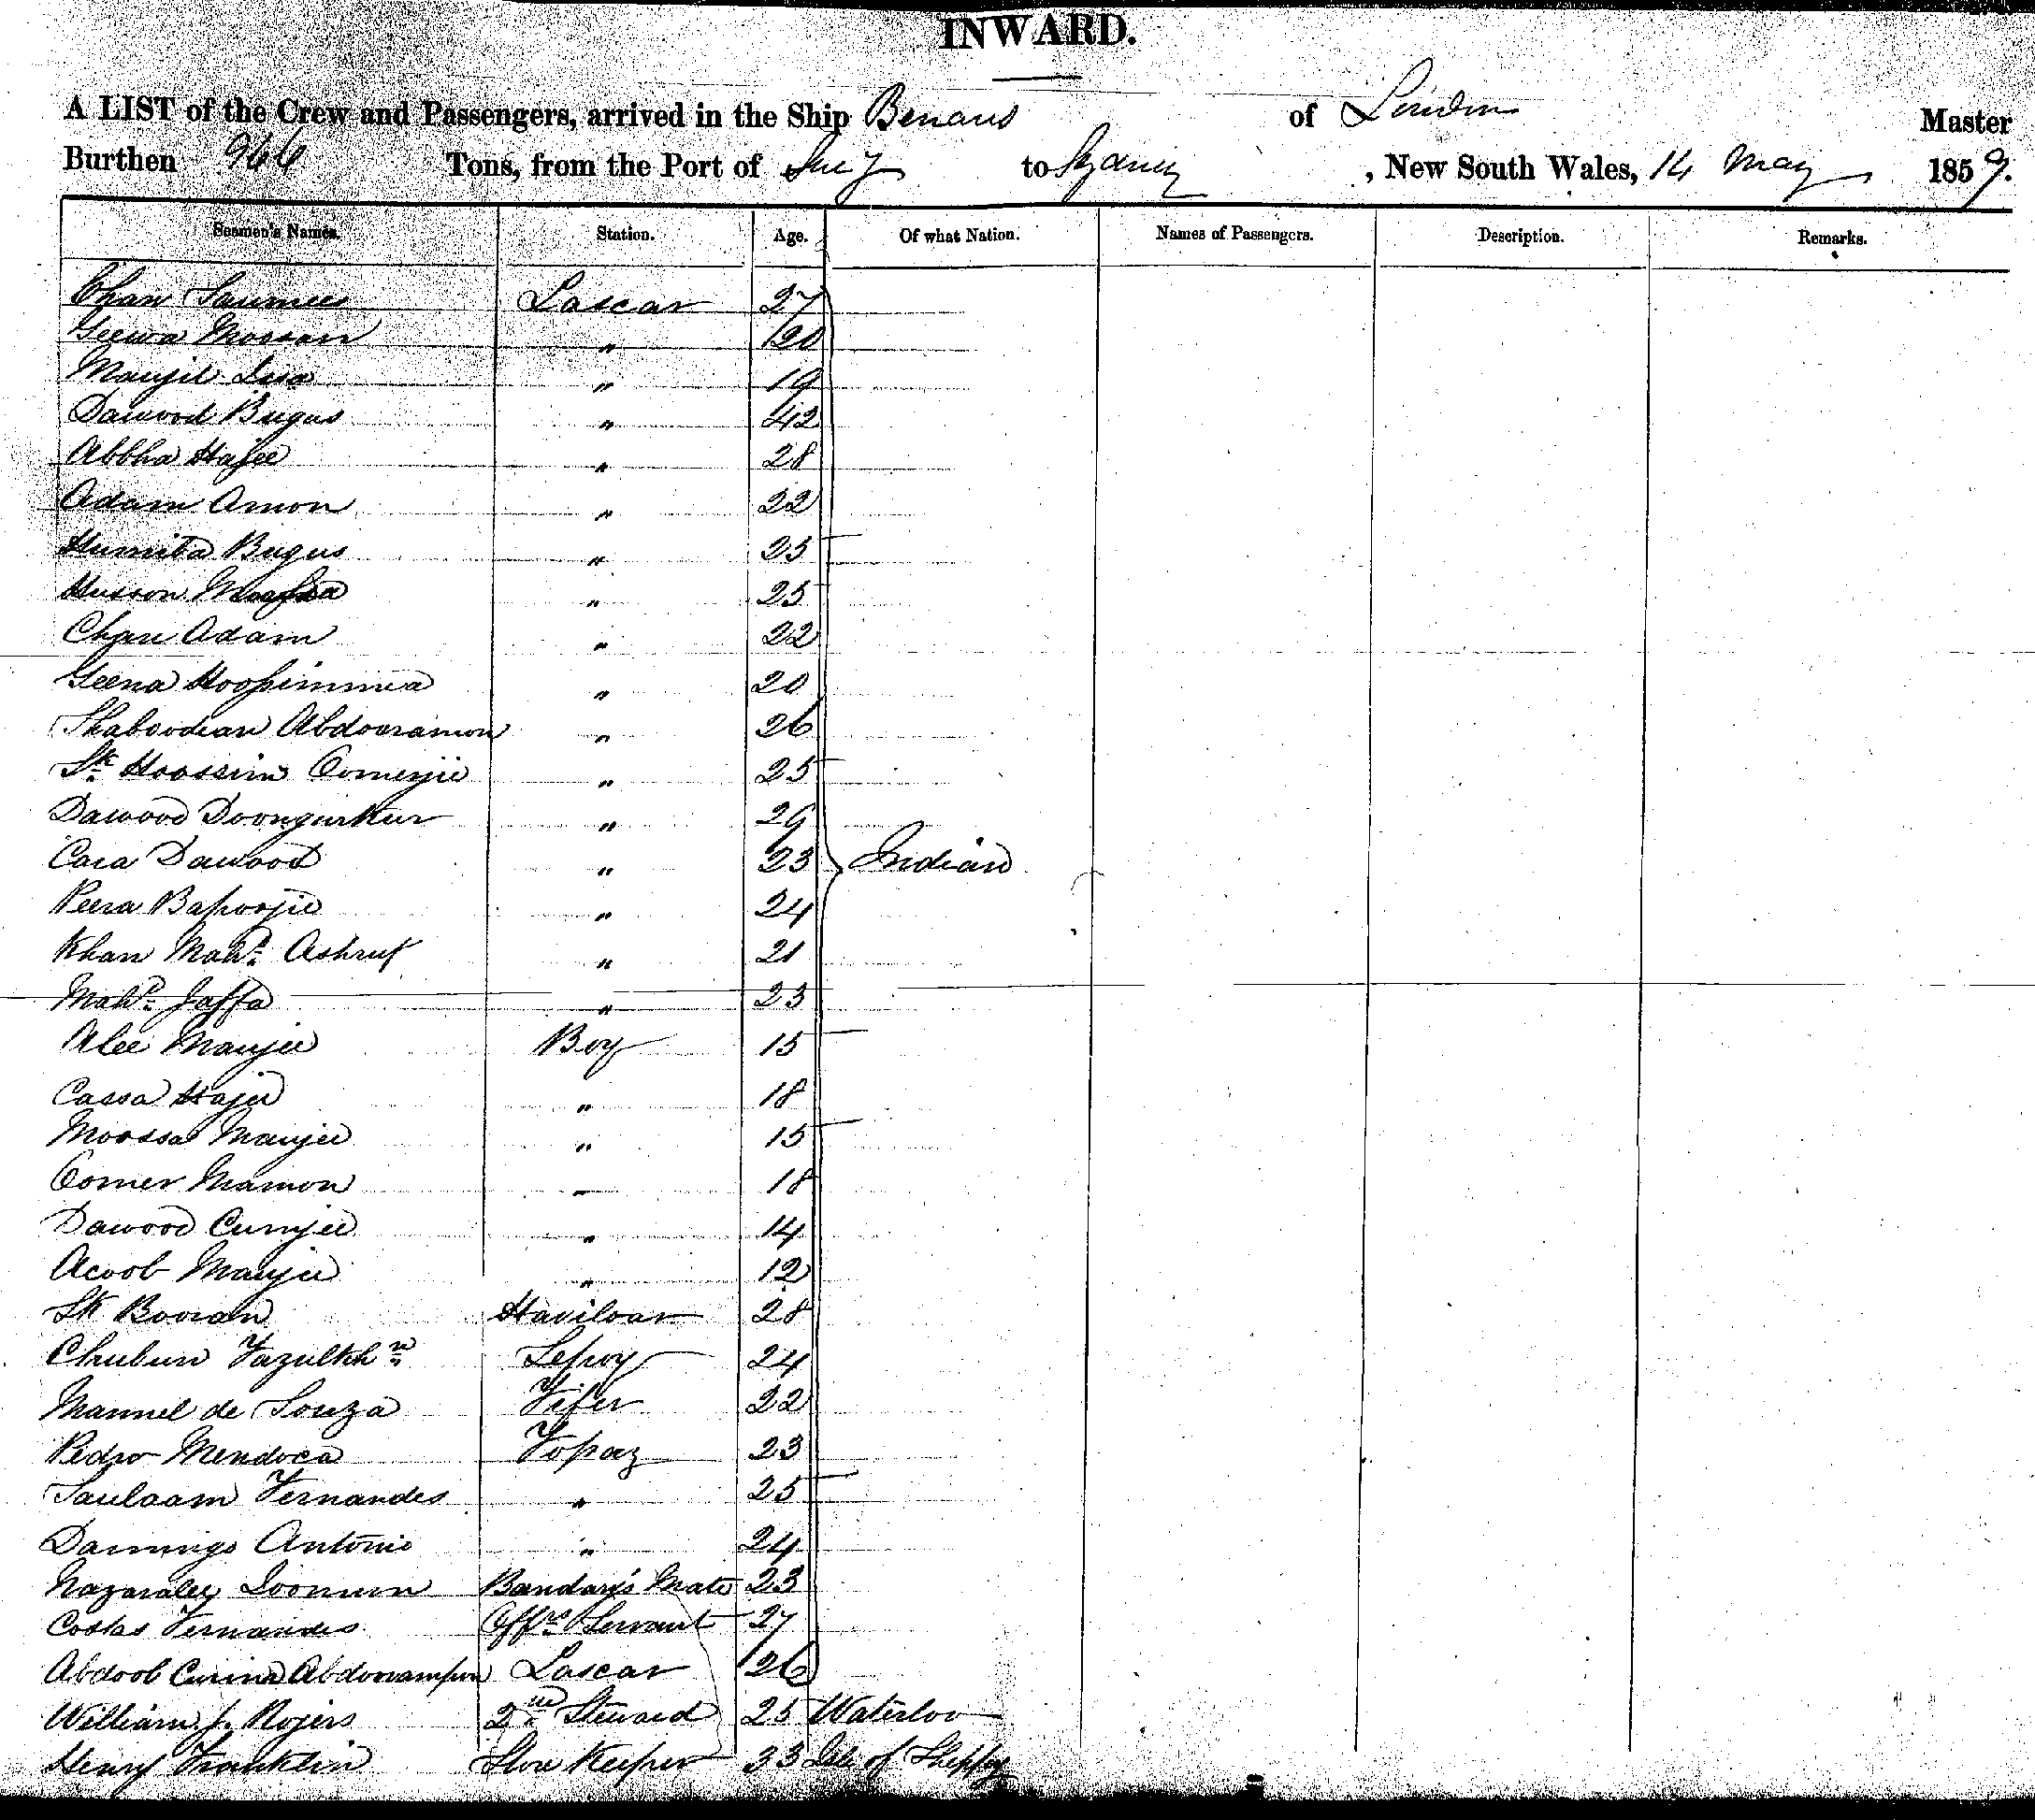 INWARD.
A LIST of the Crew and Passengers, arrived in the Ship Benares of London Master
Burthen 966 Tons, from the Port of Suez to Sydney, New South Wales, 14 May 1859.
Seamen's Names. Station. Age. Of what Nation. Names of Passengers. Description. Remarks.
Chan Saumee Lascar 27
Geewa Mossan " 20
Manjil Issa " 19
Dawood Bugus " 42
Abbha Hajee " 28
Adam Amon " 22
Humita Bugus " 25
Husson " 25
Chan Adam " 22
Geena Hoopimmia " 20
Shaboodean Abdooramon " 26
Sk. Hoossim Oomerjie " 25
Dawood Doongurkur " 29
Cara Dawood " 23 Indian
Peera Bapoojie " 24
Khan Mahd. Ashruf " 21
Mahd. Jaffa " 23
Alee Manjee Boy 15
Cassa Hajee " 18
Moossa Manjee " 15
Oomer Mamon " 18
Dawood Cumjee " 14
Acoob Manjee " 12
Sk Booran Haviloar 28
Chubun Fazulkhn. Sepoy 24
Manuel de Souza Fifer 22
Pedro Mendoca Topaz 23
Saulaam Fernandes " 25
Damingo Antonio " 24
Nazaralley Loomun Bandary's Mate 23
Costas Fernandes Offrs. Servant 27
Abdoob Curina Lascar 26
William J. Rogers 2nd. Steward 25 Waterloo
Henry Franklin Store Keeper 33 Isle of Sheppy